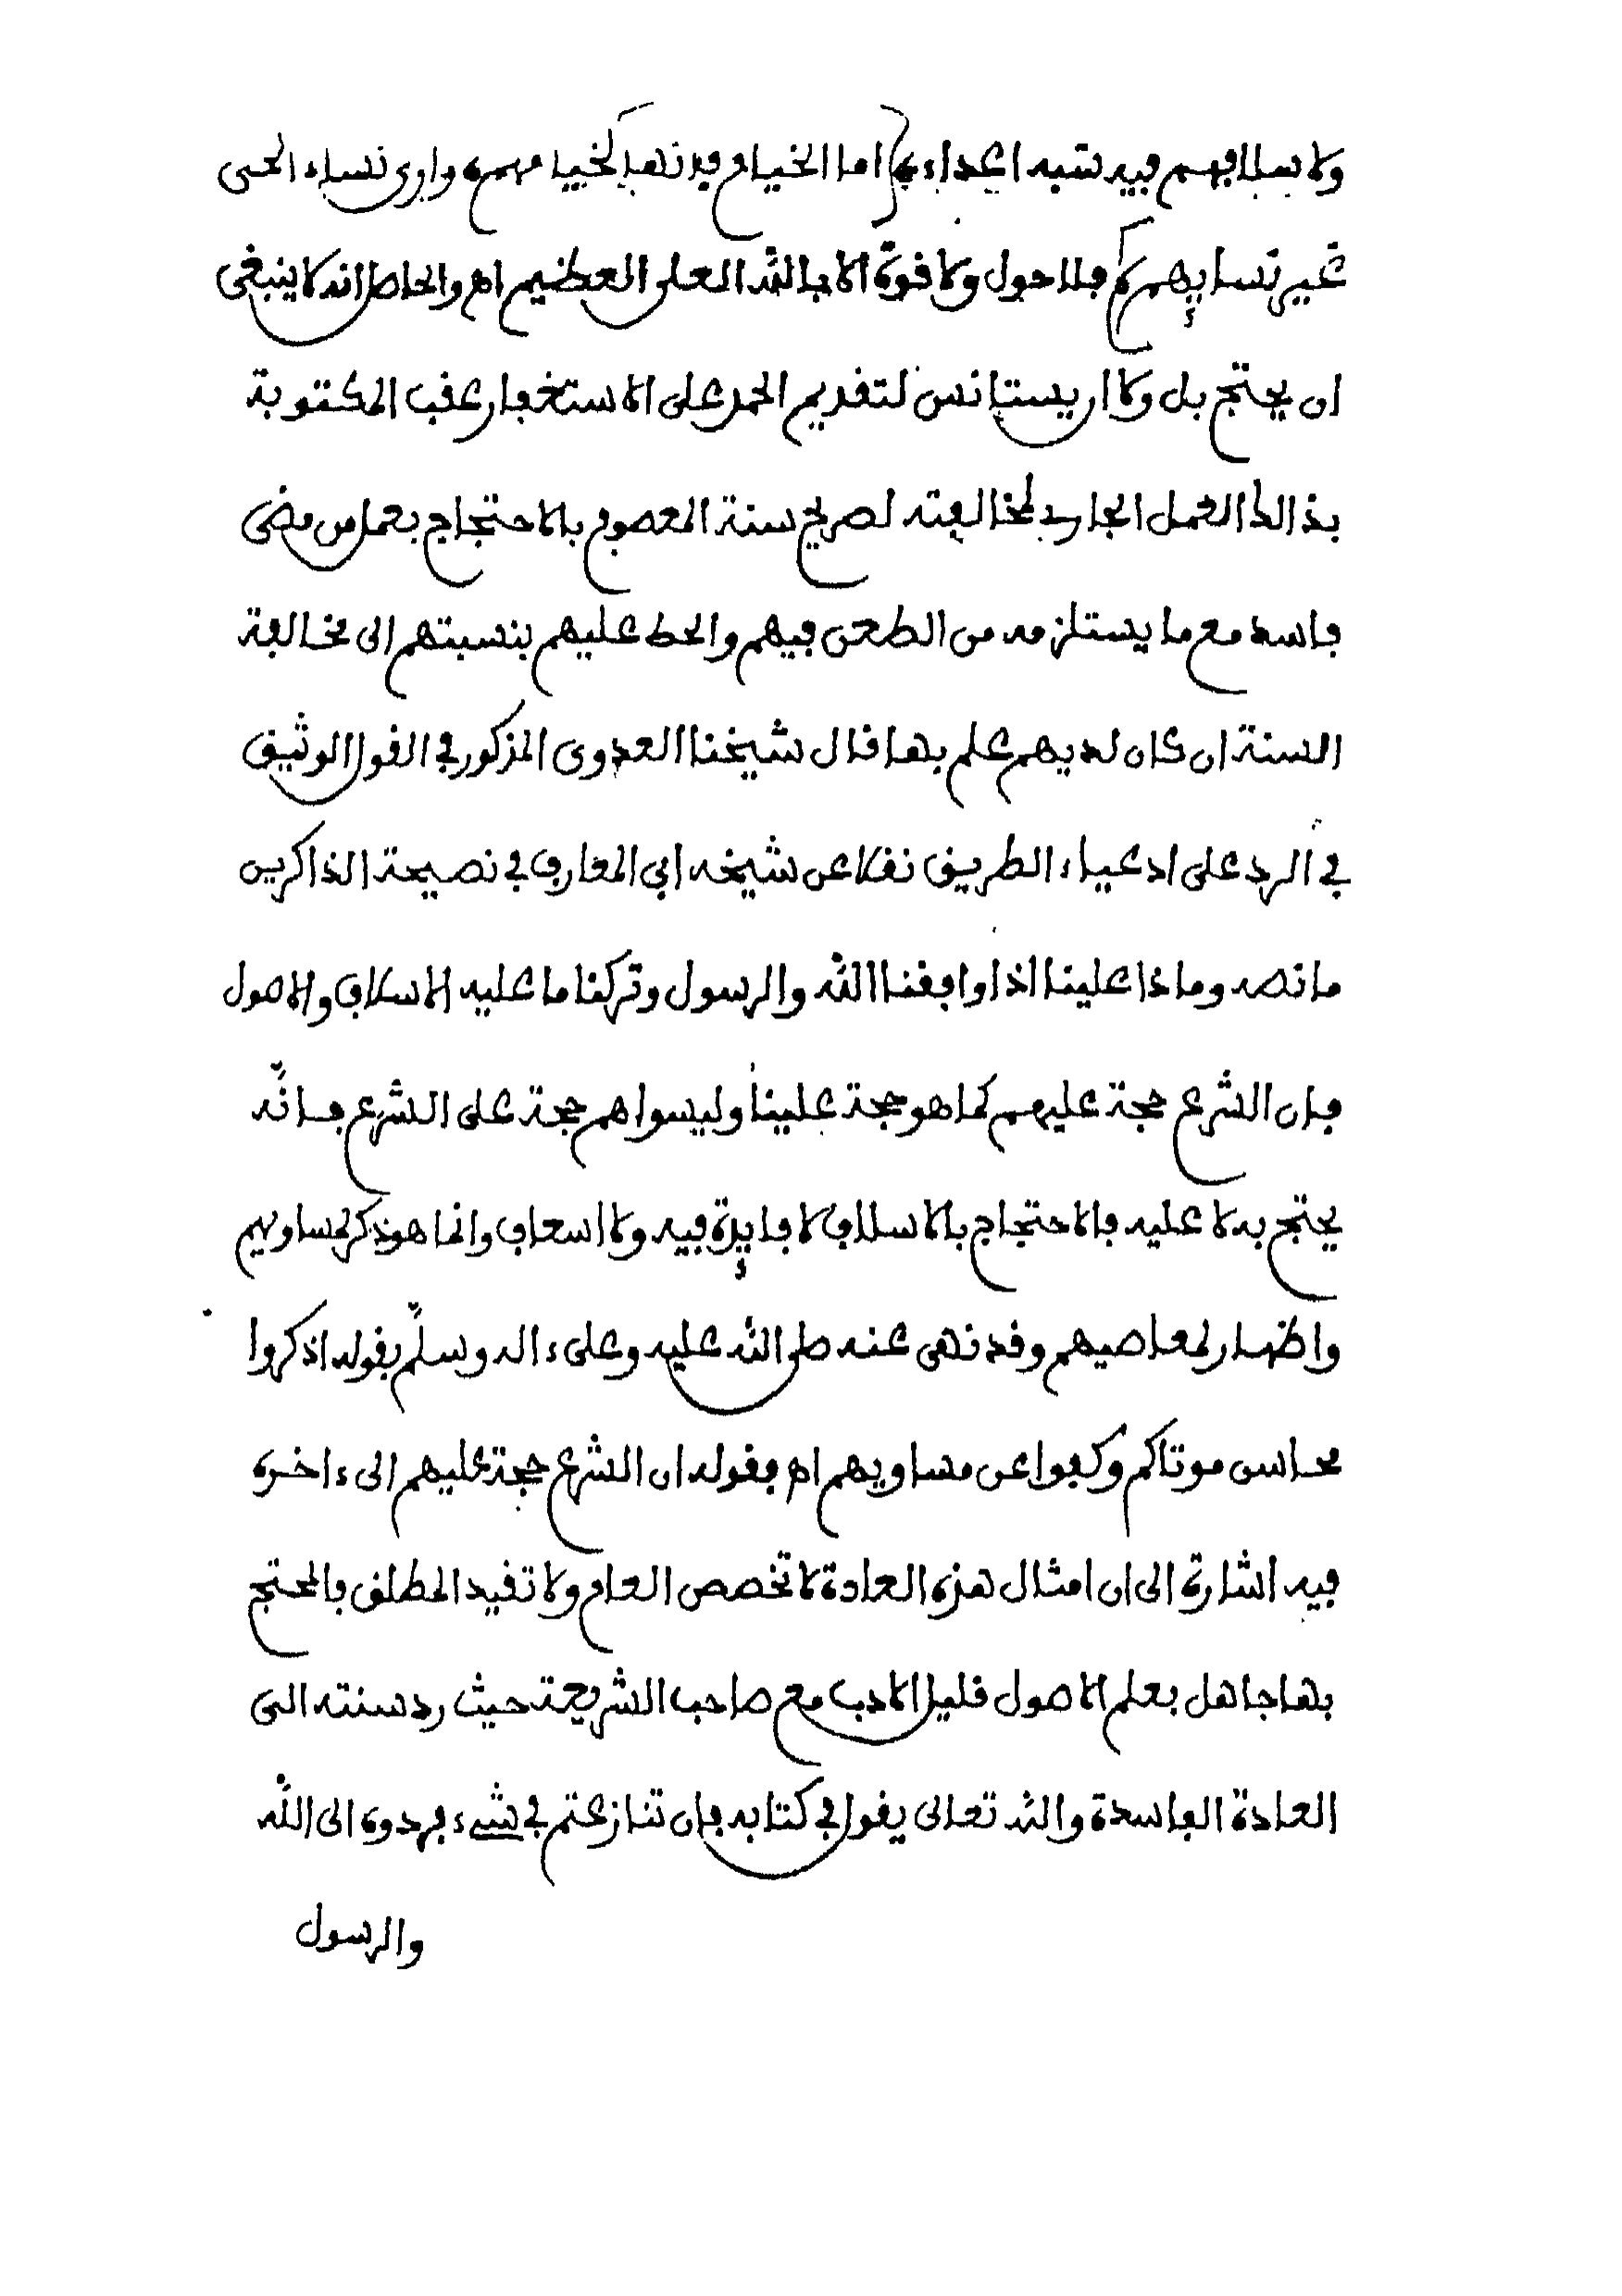 ولا سلافهم فيه شبه اعداءه اما الخيام فإنها كخيامهم وارى نساء الحي
غير نسايهم فلا حول ولا قوة الا بالله العلي العظيم اه والحاصل انه لا ينبغي
ان يحتج بل ولا ان يستانس لتقديم الحمد على الاستغفار عقب المكتوبة
بذالك العمل الجارى لمخالفته لصريح سنة المعصوم فالاحتجاج بعمل من مضى
فاسد مع ما يستلزمه من الطعن فيهم والحط عليهم بنسبتهم الى مخالفة
السنة ان كان لديهم علم بها قال شيخنا العدوى المذكور في القول الوثيق
في الرد على ادعياء الطريق نقلا عن شيخه ابي المعارف في نصيحة الذاكرين
ما نصه وماذا علينا اذا وافقنا الله والرسول وتركنا ما عليه الاسلاف والاصول
فان الشرع حجة عليهم كما هو حجة علينا وليسوا هم حجة على الشرع فانّه
يحتج به لا عليه فالاحتجاج بالاسلاف لا فايدة فيه ولا اسعاف وانما هو ذكر لمساويهم
واظهار لمعاصيهم وقد نهى عنه صلى الله عليه وعلى ءاله وسلّم بقوله اذكروا
محاسن موتاكم وكفوا عن مساويهم اه فقوله ان الشرع حجة عليهم الى ءاخره
فيه اشارة الى ان امثال هذه العادة لا تخصص العام ولا تقيد المطلق فالمحتج
بها جاهل بعلم الاصول قليل الادب مع صاحب الشريعة حيث رد سنته الى
العادة الفاسدة والله تعالى يقول في كتابه فان تنازعتم في شىء فردوه الى الله
والرسول